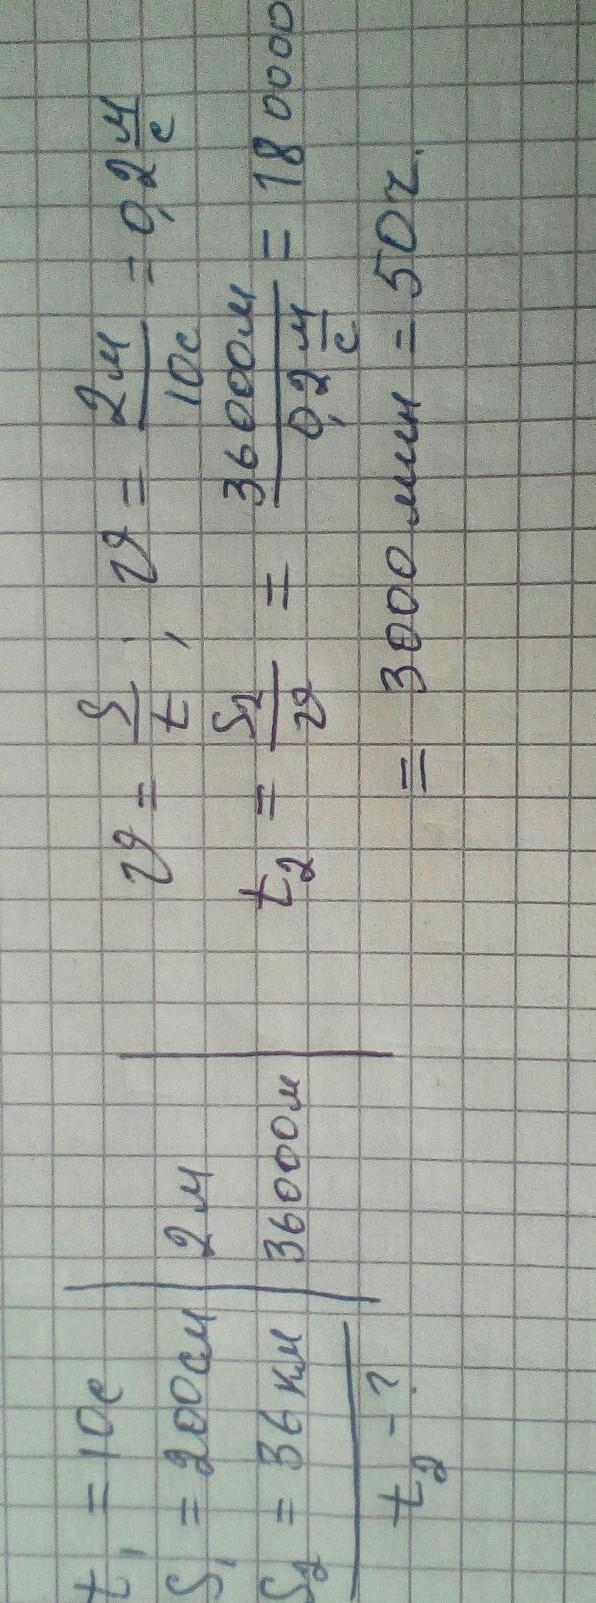 t₁ = 10с
S₁ = 200см | 2м
S₂ = 36км | 36000м
t₂ - ?
υ = S/t, υ = 2м/10с = 0,2 м/с
t₂ = S₂/υ = 36000м/0,2 м/с = 180000
= 3000 мин = 50ч.